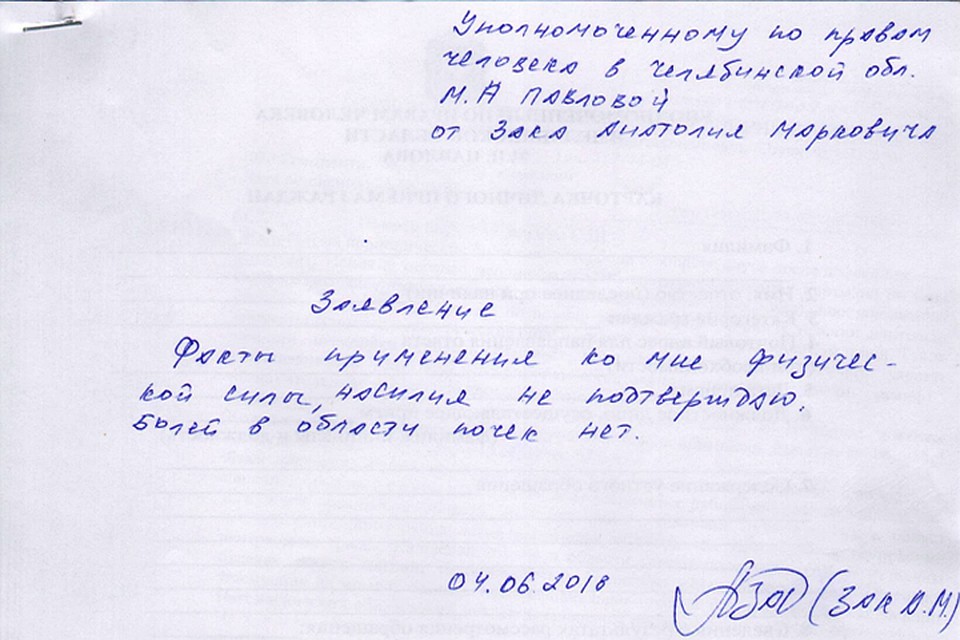 Уполномоченному по правам
человека в Челябинской обл.
М.А ПАВЛОВОЙ
от Зака Анатолия Марковича
Заявление
Факты применения ко мне физичес-
кой силы, насилия не подтверждаю.
Болей в области почек нет.
04.06.2018
(ЗАК А.М.)